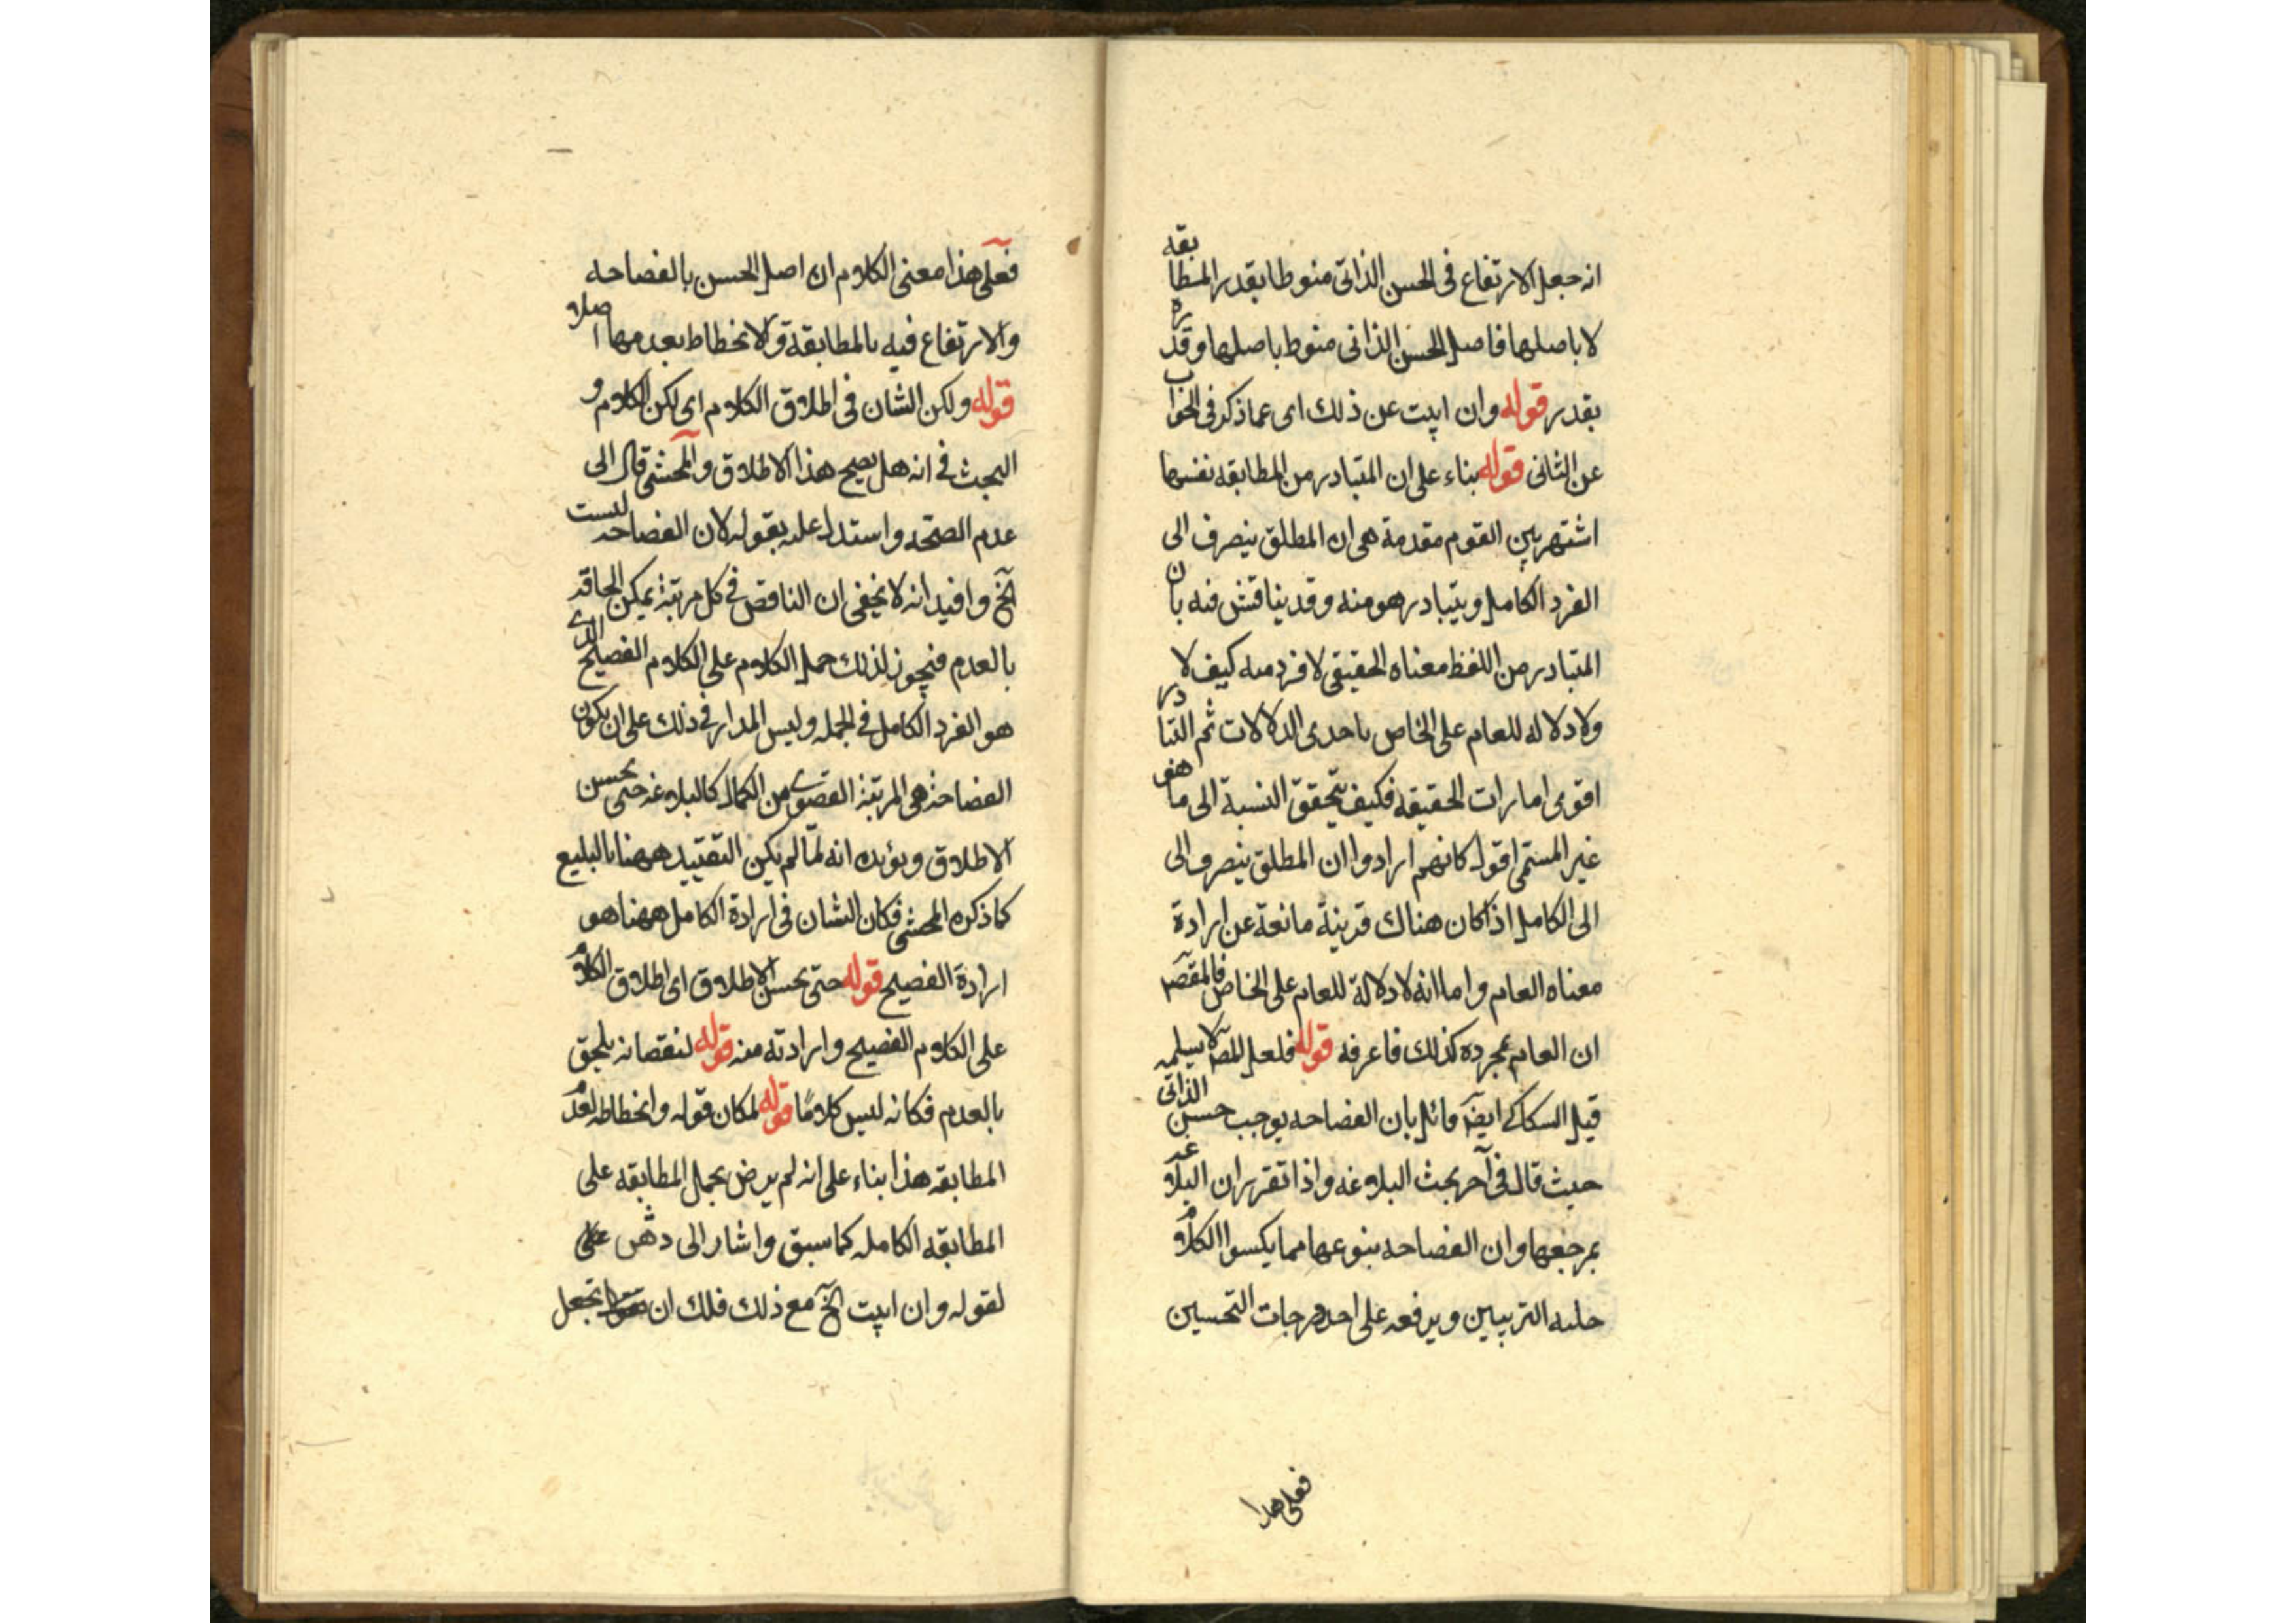 انه جعل الارتفاع فى الحسن الذاتى منوطا بقدر المطابقه
لا باصلها فاصل الحسن الذاتى منوط باصلها وقدره
بقدر قوله وان ابيت عن ذلك اى عما ذكر فى الجواب
عن الثانى قوله بناء على ان المتبادر من المطابقه نفسها
اشتهر بين القوم مقدمة هى ان المطلق ينصرف الى
الفرد الكامل ويتبادر هو منه وقد يناقش فيه بان
المتبادر من اللفظ معناه الحقيقى لا فرد منه كيف لا
ولا دلاله للعام على الخاص باحدى الدلالات ثم التبادر
اقوى امارات الحقيقه فكيف يتحقق النسبة الى ما هو
غير المسمى اقول كانهم ارادوا ان المطلق ينصرف الى
الى الكامل اذا كان هناك قرينة مانعة عن ارادة
معناه العام واما انه لا دلالة للعام على الخاص فالمقصر
ان العام بمجرده كذلك فاعرفه قوله فلعل المص لا يسلمه
قيل السكاكى ايضا قائل بان الفصاحه يوجب حسن الذاتى
حيث قال فى آخر بحث البلاغه واذا تقرر ان البلاغه
بمرجعها وان الفصاحه بنوعها مما يكسوا الكلام
حليه التزيين ويرفعه على احد درجات التحسين
فعلى هذا
فعلى هذا معنى الكلام ان اصل الحسن بالفصاحه
والارتفاع فيه بالمطابقة والانحطاط بعدمها اصلا
قوله ولكن الشان فى اطلاق الكلام اى لكن الكلام و
البحث فى انه هل يصح هذا الاطلاق والمحشى قال الى
عدم الصحه واستدل عليه بقوله لان الفصاحه ليست
الخ وافيد انه لا يخفى ان الناقص فى كل مرتبة يمكن الحاقه
بالعدم فيجوز لذلك حمل الكلام على الكلام الفصيح الذى
هو الفرد الكامل فى الجمله وليس المدار فى ذلك على ان يكون
الفصاحة هى المرتبة القصوى من الكمال كالبلاغه حتى يحسن
الاطلاق ويؤيده انه لما لم يكن التقييد ههنا بالبليغ
كما ذكره المحشى فكان الشان فى ارادة الكامل ههنا هو
ارادة الفصيح قوله حتى يحسن الاطلاق اى اطلاق الكلام
على الكلام الفصيح وارادته منه قوله لنقصانه يلحق
بالعدم فكانه ليس كلامًا قوله لمكان قوله وانحطاطه لعدم
المطابقه هذا بناء على انه لم يرض بحمل المطابقه على
المطابقه الكامله كما سبق واشار الى على
لقوله وان ابيت الخ مع ذلك فلك ان تجعل